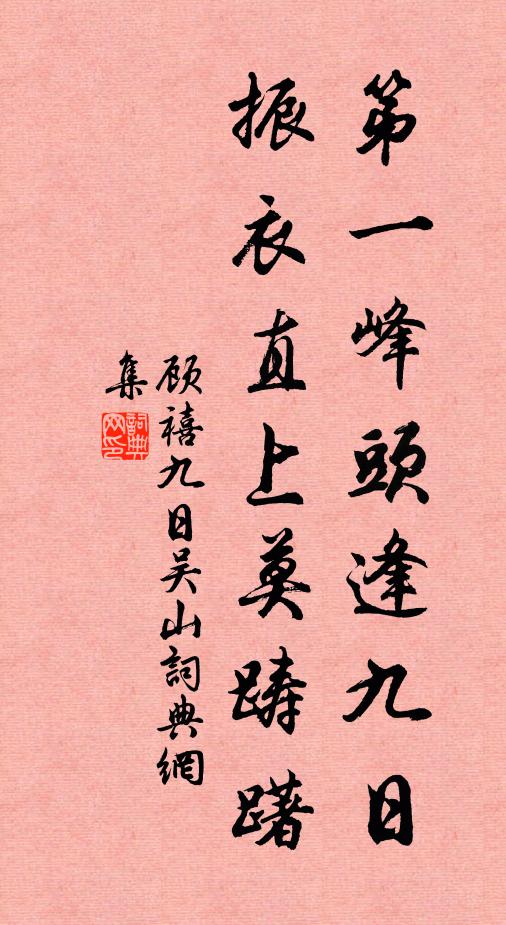 第一峰頭逢九日
振衣直上莫踌躇
顾禧九日吴山詞典網
集
詞典
网印